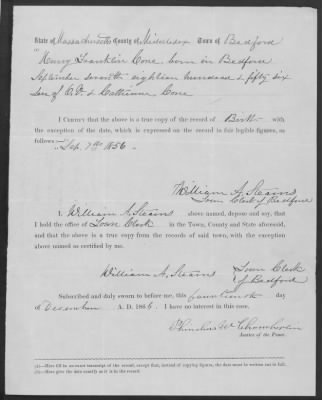 State of Massachusetts County of Middlesex Town of Bedford
"Henry Franklin Cone, born in Bedford
September seventh eighteen hundred & fifty six
Son of & Catherine Cone
I CERTIFY that the above is a true copy of the record of Birth with
the exception of the date, which is expressed on the record in fair legible figures, as
follows:—
"Sep. 7th 1856"
William A. Stearns
Town Clerk of Bedford
I, William A. Stearns above named, depose and say, that
I hold the office of Town Clerk in the Town, County and State aforesaid,
and that the above is a true copy from the records of said town, with the exception
above named as certified by me.
William A. Stearns Town Clerk
of Bedford
Subscribed and duly sworn to before me, this fourteenth day
of December A. D. 1886. I have no interest in this case.
Justice of the Peace.
(1)—Here fill in accurate transcript of the record, except that, instead of copying figures, the date must be written out in full.
(2)—Here give the date exactly as it is in the record.